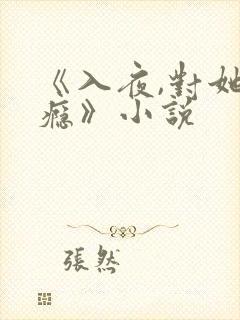 《入夜,對她
癮》小說
張然